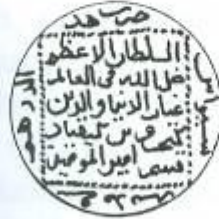 ضرب هذا
السلطان الاعظم
ظل الله في العالم
غياث الدنيا والدين
كيخسرو بن كيقباد
قسيم امير المومنين
الدرهم
بسيواس